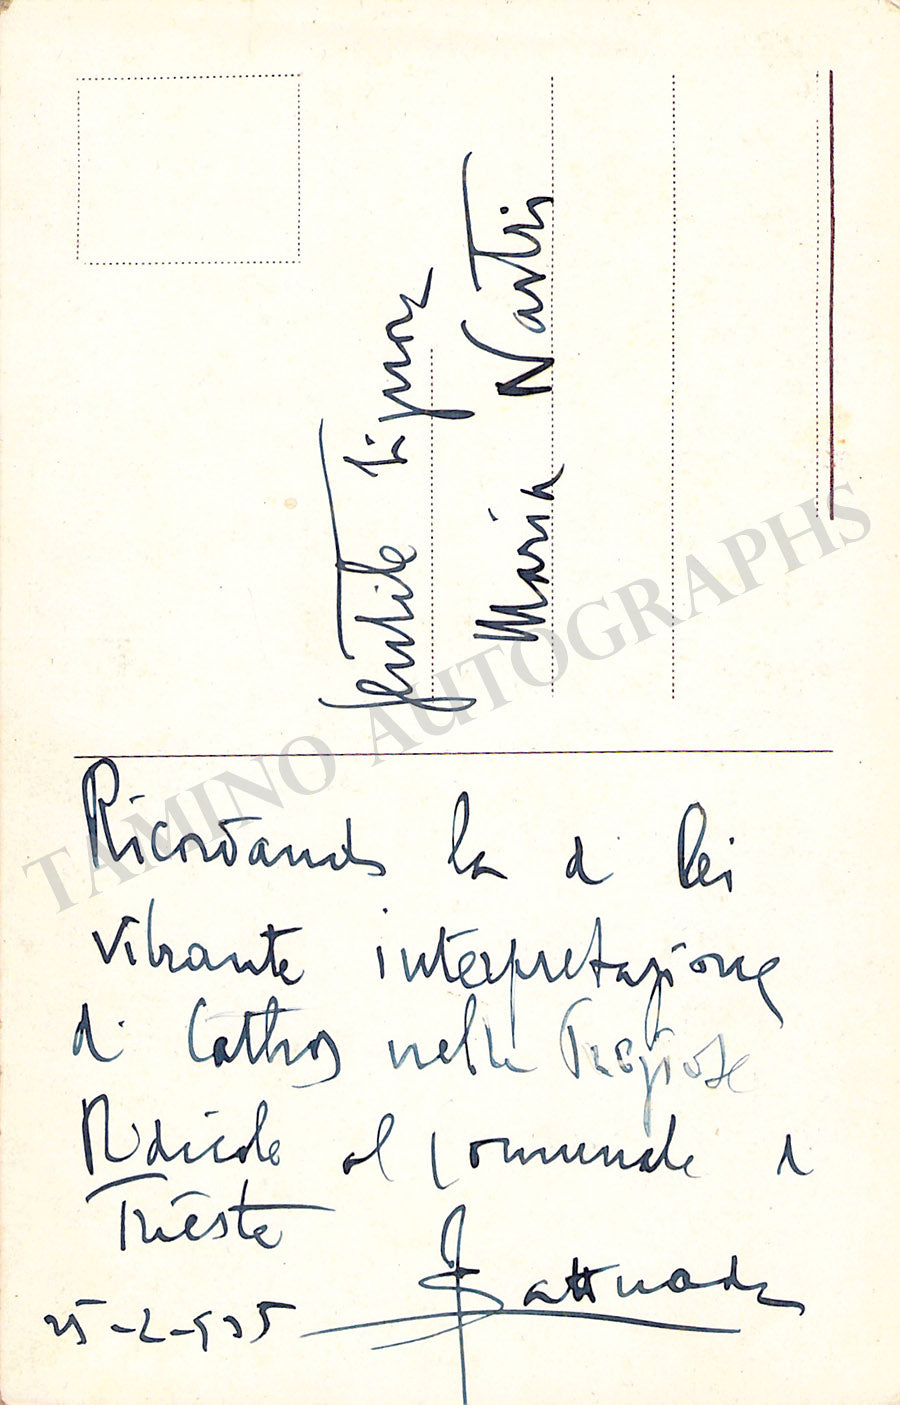 Gentile Signora
Maria Nastri
Ricordando la di lei
vibrante interpretazione
di Cathos nelle Preziose
Ridicole al Comunale di
Trieste
25-2-935
TAMINO AUTOGRAPHS